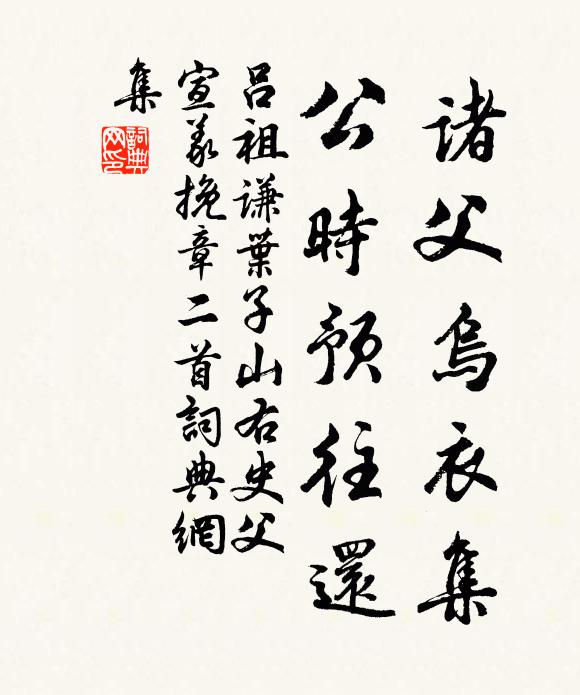 諸父烏衣集
公時預往還
呂祖謙葉子山右史父
宣義挽章二首詞典網
集
詞典網印